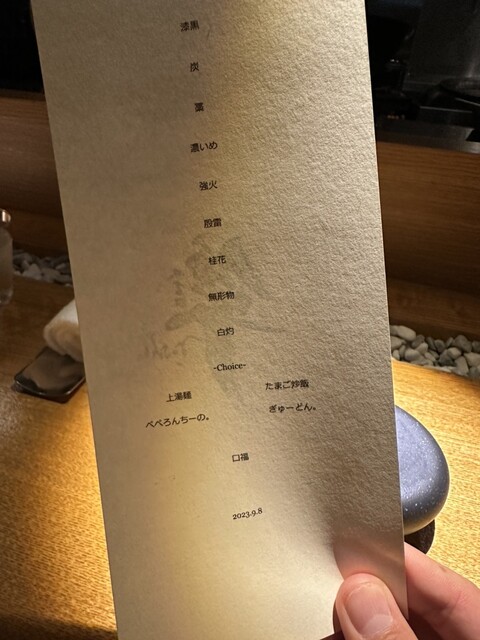 漆黒
炭
藁
濃いめ
強火
殷雷
桂花
無形物
白灼
-Choice-
上湯麺 たまご炒飯
ぺぺろんちーの。 ぎゅーどん。
口福
2023.9.8